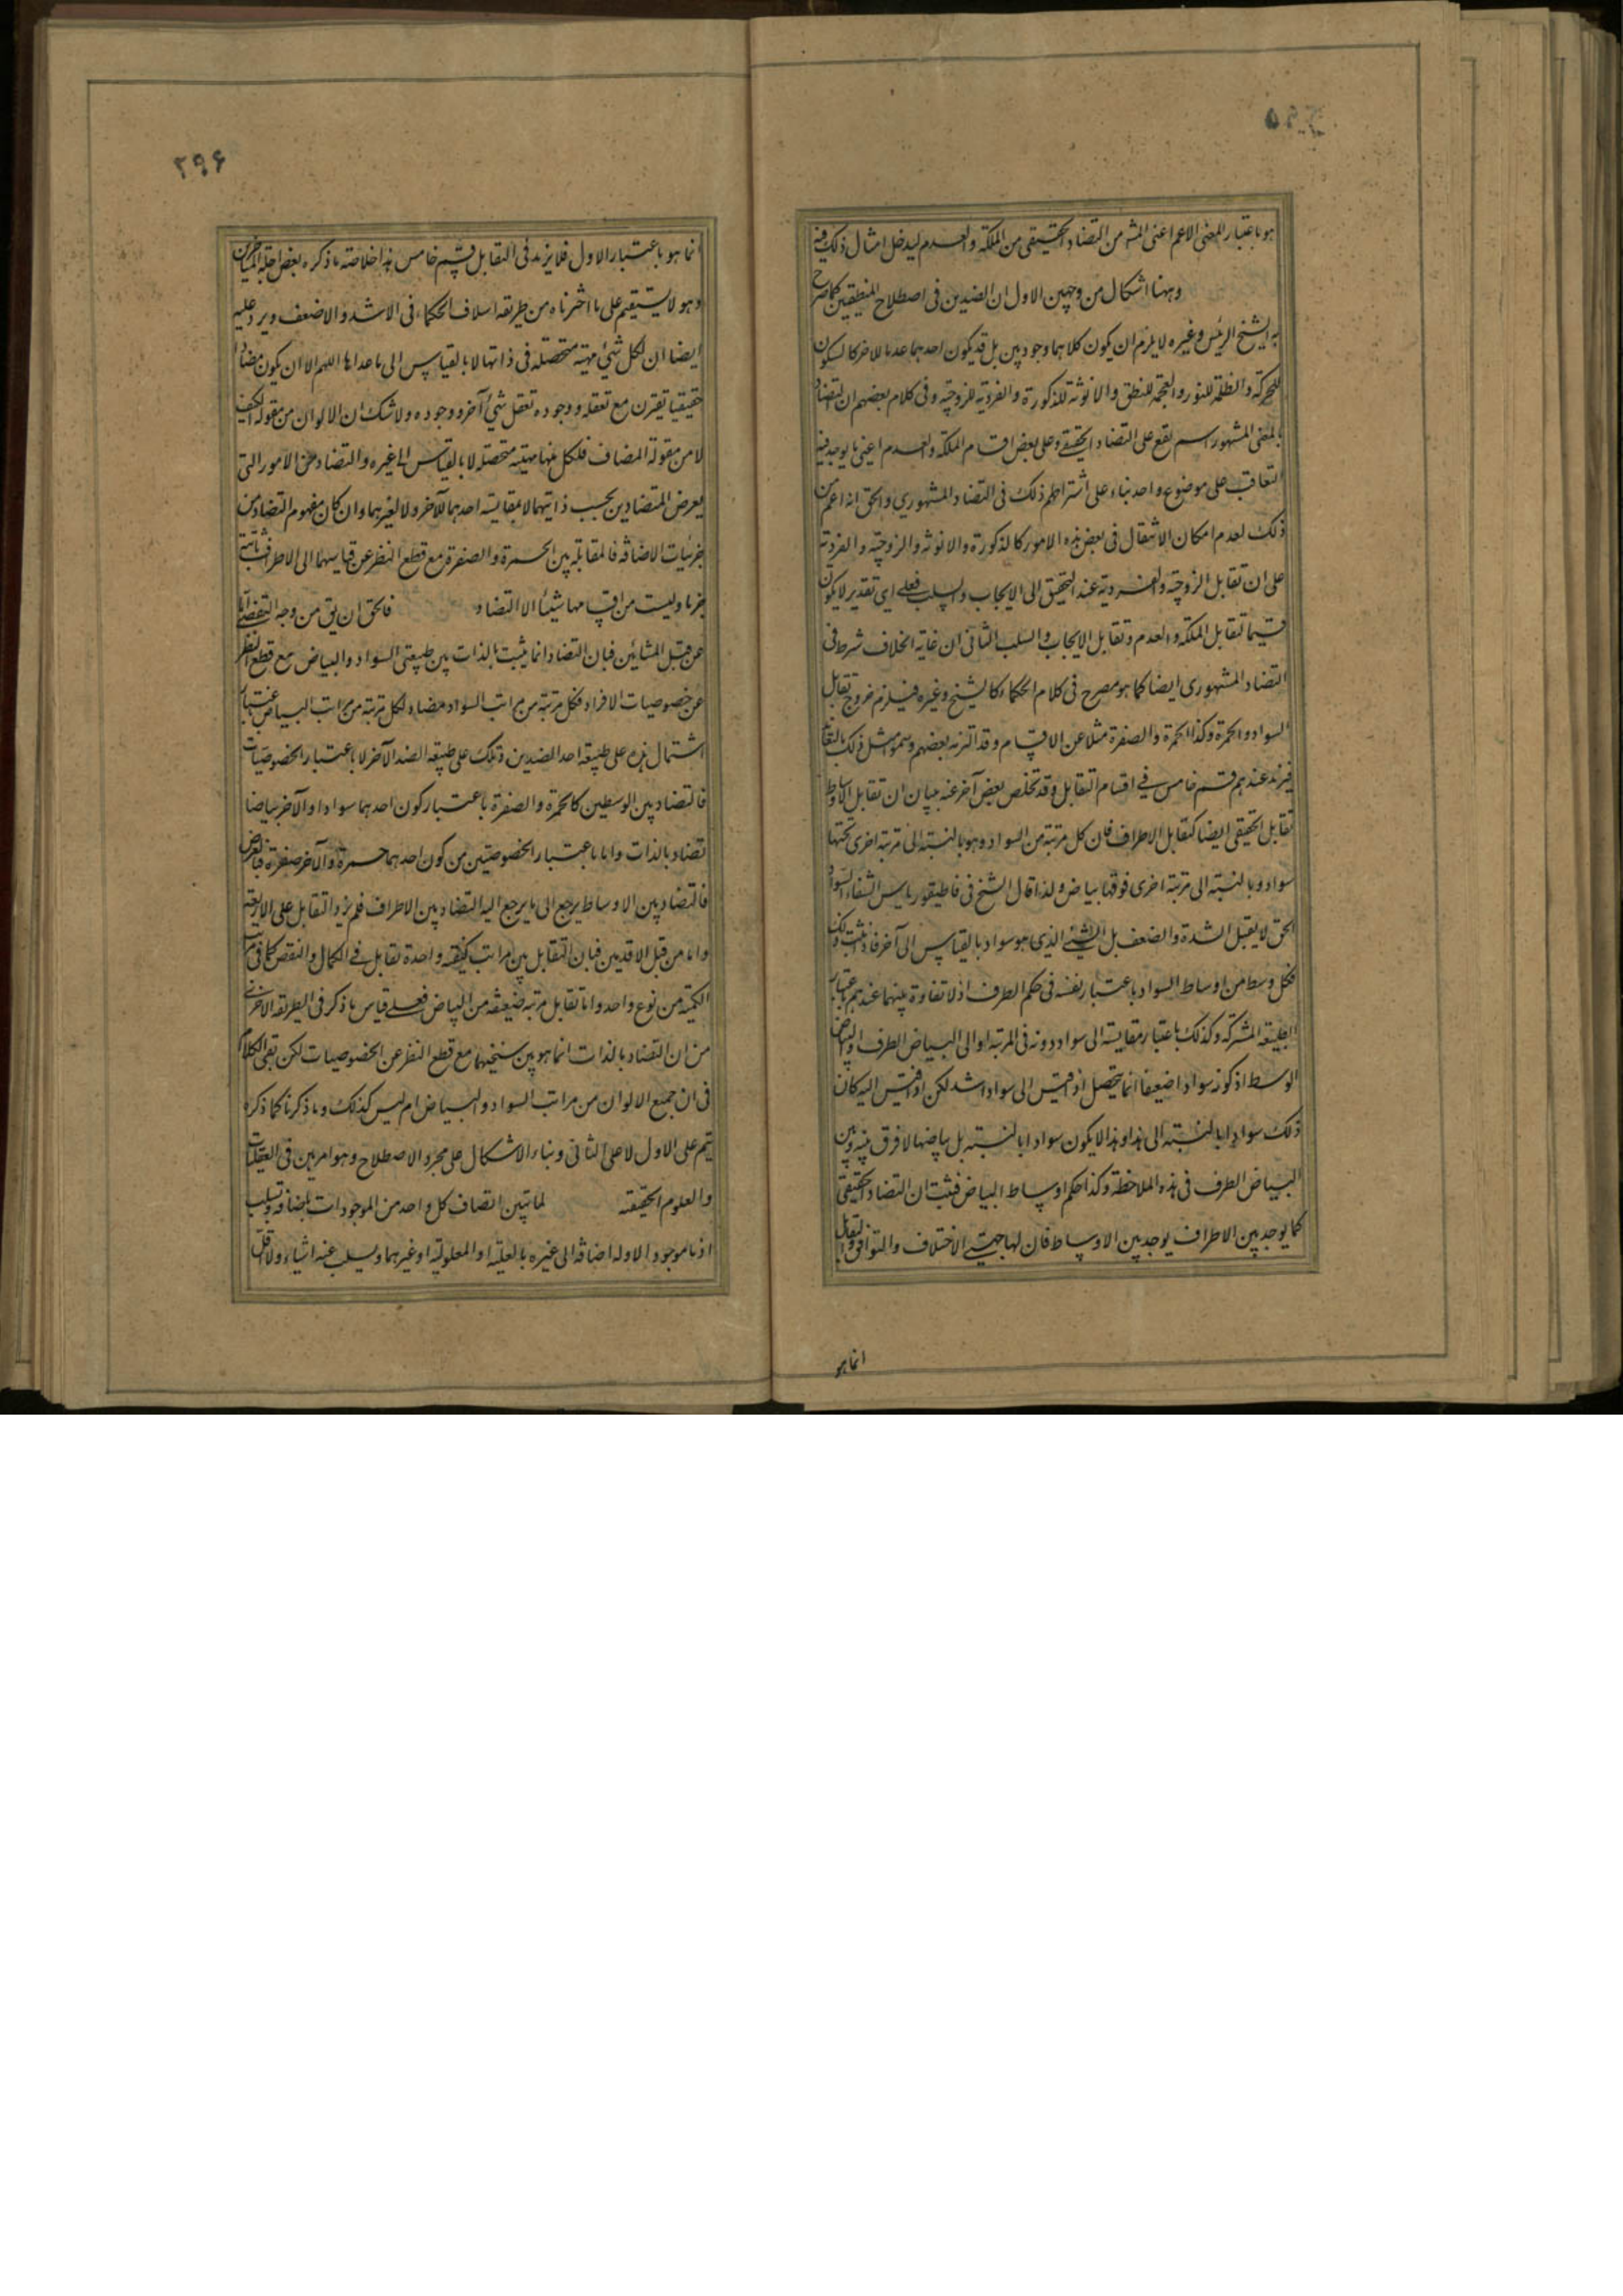 هو باعتبار المعنى الاعم اعنى المش من التضاد الحقيقى من الملكة والعدم ليدخل امثال ذلك فيه
وههنا اشكال من وجهين الاول ان الضدين فى اصطلاح المنطقيين كما صرح
به الشيخ الرئيس وغيره لا يلزم ان يكون كلاهما وجوديين بل قد يكون احدهما عدما للاخر كالسكون
للحركة والظلمة للنور والعجمة للنطق والانوثة للذكورة والفردية للزوجية وفى كلام بعضهم ان التضاد
بالمعنى المشهور اسم يقع على التضاد الحقيقى وعلى بعض اقسام الملكة والعدم اعنى ما يوجد فيه
التعاقب على موضوع واحد بناء على اشتراطهم ذلك فى التضاد المشهورى والحق انه اعم من
ذلك لعدم امكان الانتقال فى بعض هذه الامور كالذكورة والانوثة والزوجية والفردية
على ان تقابل الزوجية والفردية عند التحقيق الى الايجاب والسلب فعلى اى تقدير لا يكون
قسيما لتقابل الملكة والعدم وتقابل الايجاب والسلب الثانى ان غاية الخلاف شرط فى
التضاد المشهورى ايضا كما هو مصرح فى كلام الحكماء كالشيخ وغيره فيلزم خروج تقابل
السواد والحمرة وكذا الحمرة والصفرة مثلا عن الاقسام وقد التزمه بعضهم وسموا مثل ذلك بالتعاند
فيزيد عندهم قسم خامس فى اقسام التقابل وقد تخلص بعض آخر عنه ببيان ان تقابل الاوساط
تقابل الحقيقى ايضا كتقابل الاطراف فان كل مرتبة من السواد وهو بالنسبة الى مرتبة اخرى تحتها
سواد وبالنسبة الى مرتبة اخرى فوقها بياض ولذا قال الشيخ فى قاطيقورياس الشفاء السواد
الحق لا يقبل الشدة والضعف بل الشئ الذى هو سواد بالقياس الى آخر فاذ ثبت ذلك
فكل وسط من اوساط السواد باعتبار نفسه فى حكم الطرف اذ لا تفاوة بينهما عندهم باعتبار
الطبيعة المشتركة وكذلك باعتبار مقايسته الى سواد دونه فى المرتبة او الى البياض الطرف او البياض
الوسط اذ كونه سوادا ضعيفا انما يتحصل اذ قيس الى سواد اشد لكن اذ قيس اليه كان
ذلك سوادا بالنسبة الى هذا وهذا لا يكون سوادا بالنسبة بل بياضها لا فرق بينه وبين
البياض الطرف فى هذه الملاحظة وكذا حكم اوساط البياض فثبت ان التضاد الحقيقى
كما يوجد بين الاطراف يوجد بين الاوساط فان لها جهتى الاختلاف والتوافق والتقابل
انما هو
۲۹۶
انما هو باعتبار الاول فلا يزيد فى التقابل قسم خامس هذا خلاصة ما ذكره بعض اجلة المتاخرين
وهو لا يستقيم على ما اخترناه من طريقة اسلاف الحكماء فى الاشد والاضعف ويرد عليه
ايضا ان لكل شئ مهية متحصلة فى ذاتها لا بالقياس الى ما عداها اللهم الا ان يكون مضافا
حقيقيا يقترن مع تعقله ووجوده تعقل شئ آخر ووجوده ولا شك ان الالوان من مقولة الكيف
لا من مقولة المضاف فلكل منها مهية متحصلة لا بالقياس الى غيره والتضاد من الامور التى
يعرض المتضادين بحسب ذاتيهما لا بمقايسة احدهما للآخر ولا لغيرهما وان كان مفهوم التضاد من
جزئيات الاضافة فالمقابلة بين الحمرة والصفرة مع قطع النظر عن قياسهما الى الاطراف ثابتة
جزما وليست من اقسامها شيئا الا التضاد فالحق ان يق من وجه التفصى اما
عن قبل المشائين فبان التضاد انما يثبت بالذات بين طبيعتى السواد والبياض مع قطع النظر
عن خصوصيات الافراد فكل مرتبة من مراتب السواد مضاد لكل مرتبة من مراتب البياض باعتبار
اشتمال هذه على طبيعة احد الضدين وتلك على طبيعة الضد الآخر لا باعتبار الخصوصيات
فالتضاد بين الوسطين كالحمرة والصفرة باعتبار كون احدهما سوادا والآخر بياضا
تضاد بالذات واما باعتبار الخصوصيتين من كون احدهما حمرة والآخر صفرة فبالعرض
فالتضاد بين الاوساط يرجع الى ما يرجع اليه التضاد بين الاطراف فلم يزد التقابل على الاربعة
واما من قبل الاقدمين فبان التقابل بين مراتب كيفية واحدة تقابل فى الكمال والنقص كما فى مراتب
الكمية من نوع واحد واما تقابل مرتبة ضعيفة من البياض فعلى قياس ما ذكر فى الطريقة الاخرى
من ان التضاد بالذات انما هو بين سنخيهما مع قطع النظر عن الخصوصيات لكن بقى الكلام
فى ان جميع الالوان من مراتب السواد والبياض ام ليس كذلك وما ذكرنا كما ذكره
يتم على الاول لا على الثانى وبناء الاشكال على مجرد الاصطلاح وهو امر هين فى العقليات
والعلوم الحقيقية لما تبين اتصاف كل واحد من الموجودات باضافة وسلب
اذ ما موجود الا وله اضافة الى غيره بالعلية او المعلولية او غيرهما ويسلب عنه اشياء ولا اقلها